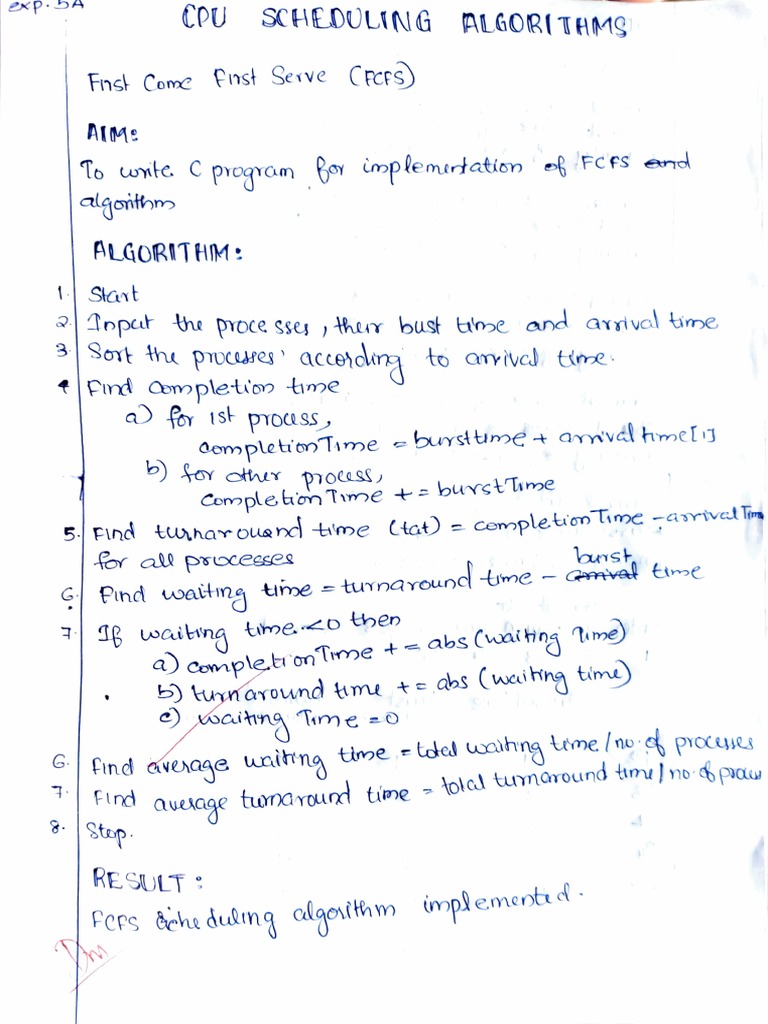 exp. 5A
CPU SCHEDULING ALGORITHMS
First Come First Serve (FCFS)
AIM:
To write C program for implementation of FCFS and
algorithm
ALGORITHM:
1. Start
2. Input the processes, their bust time and arrival time
3. Sort the processes' according to arrival time.
4 Find completion time
a) for 1st process,
completionTime = bursttime + arrivaltime[1]
b) for other process,
completionTime += burstTime
5. Find turnarouond time (tat) = completionTime - arrivalTime
for all processes
burst
6. Find waiting time = turnaround time - arrival time
7. If waiting time <0 then
a) completionTime += abs (waiting Time)
b) turnaround time += abs (waiting time)
c) waiting Time = 0
6. Find average waiting time = total waiting time / no. of processes
7. Find average turnaround time = total turnaround time / no. of
8. Stop.
RESULT:
FCFS Scheduling algorithm implemented.